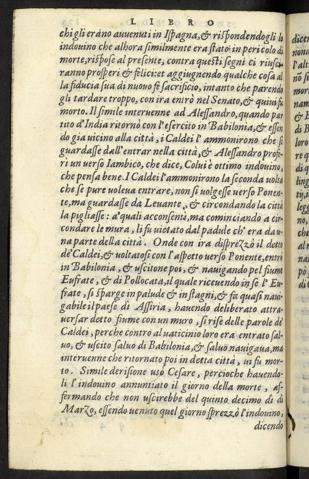 LIBRO
chi gli erano auuenuti in Ispagna, & rispondendogli lo
indouino che alhora similmente era stato in pericolo di
morte, rispose al presente, contra questi segni ci riusci
ranno prosperi & felici: et aggiugnendo qualche cosa al
la fiducia sua di nuouo fè sacrificio, intanto che parendo
gli tardare troppo, con ira entrò nel Senato, & quiui fu
morto. Il simile interuenne ad Alessandro, quando par
tito d'India ritornò con l'esercito in Babilonia, & essen
do gia uicino alla città, i Caldei l'ammonirono che si
guardasse dall'entrar nella città, & Alessandro profe-
rì un uerso Iambico, che dice, Colui è ottimo indouino,
che pensa bene. I Caldei l'ammonirono la seconda uolta
che se pure uoleua entrare, non si uolgesse uerso Ponen-
te, ma guardasse da Leuante, & circondando la città
la pigliasse: a' quali acconsentì, ma cominciando a cir-
condare le mura, li fu uietato dal padule ch' era da u-
na parte della città. Onde con ira disprezzò il detto
de' Caldei, & uoltatosi con l'aspetto uerso Ponente, entrò
in Babilonia, & uscitone poi, & nauigando pel fiume
Eufrate, & di Pollocata, il quale riceuendo in se l' Eu-
frate, si sparge in palude & in stagni, & fa quasi naui-
gabile il paese di Assiria, hauendo deliberato attra-
uersar detto fiume con un muro, si rise delle parole de'
Caldei, perche contro al uaticinio loro era entrato sal-
uo, & uscito saluo di Babilonia, & saluo nauigaua, ma
interuenne che ritornato poi in detta città, ui fu mor-
to. Simile derisione usò Cesare, percioche hauendo-
li l'indouino annuntiato il giorno della morte, af-
fermando che non uscirebbe del quinto decimo dì di
Marzo, essendo uenuto quel giorno sprezzò l'indouino,
dicendo